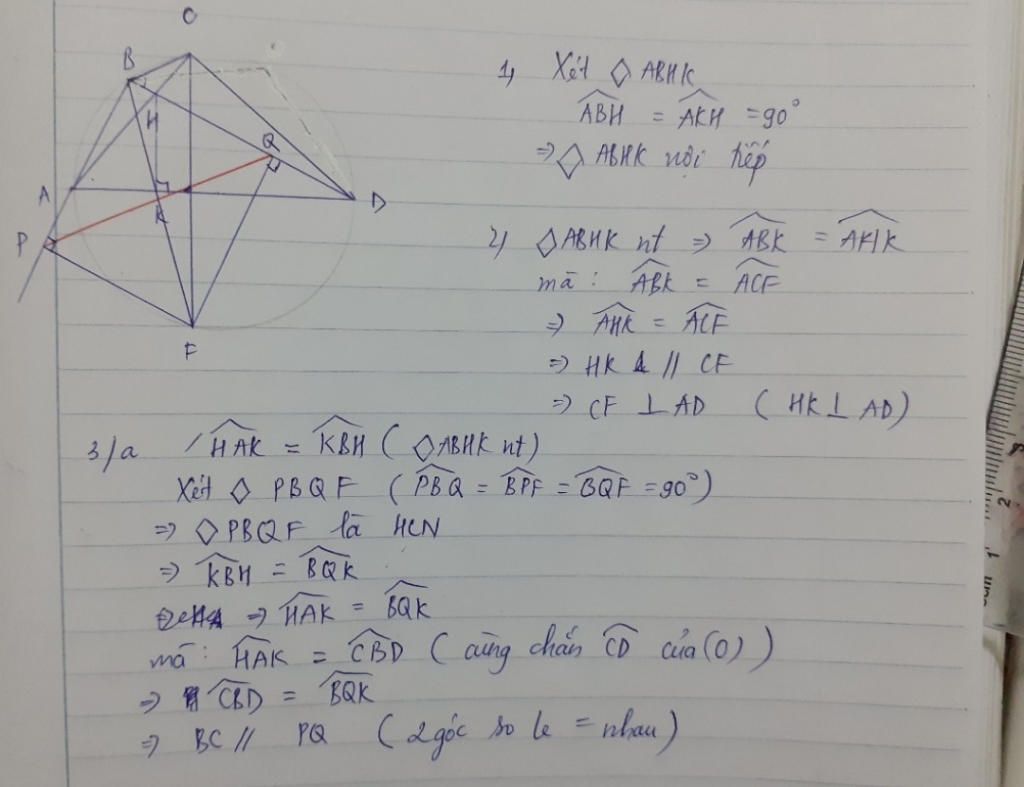 C
B
H
Q
A
K
D
P
F
1) Xét ◇ ABHK
$\widehat{ABH}$ = $\widehat{AKH}$ = 90°
=> ◇ ABHK nội tiếp
2) ◇ABHK nt => $\widehat{ABK}$ = $\widehat{AHK}$
mà : $\widehat{ABK}$ = $\widehat{ACF}$
=> $\widehat{AHK}$ = $\widehat{ACF}$
=> HK // CF
=> CF ⊥ AD ( HK ⊥ AD )
3/a $\widehat{HAK}$ = $\widehat{KBH}$ ( ◇ABHK nt)
Xét ◇ PBQF ( $\widehat{PBQ}$ = $\widehat{BPF}$ = $\widehat{BQF}$ = 90°)
=> ◇PBQF là HCN
=> $\widehat{KBH}$ = $\widehat{BQK}$
=> $\widehat{HAK}$ = $\widehat{BQK}$
mà : $\widehat{HAK}$ = $\widehat{CBD}$ ( cùng chắn $\widehat{CD}$ của (O) )
=> $\widehat{CBD}$ = $\widehat{BQK}$
=> BC // PQ ( 2 góc so le = nhau )
2
1
cm